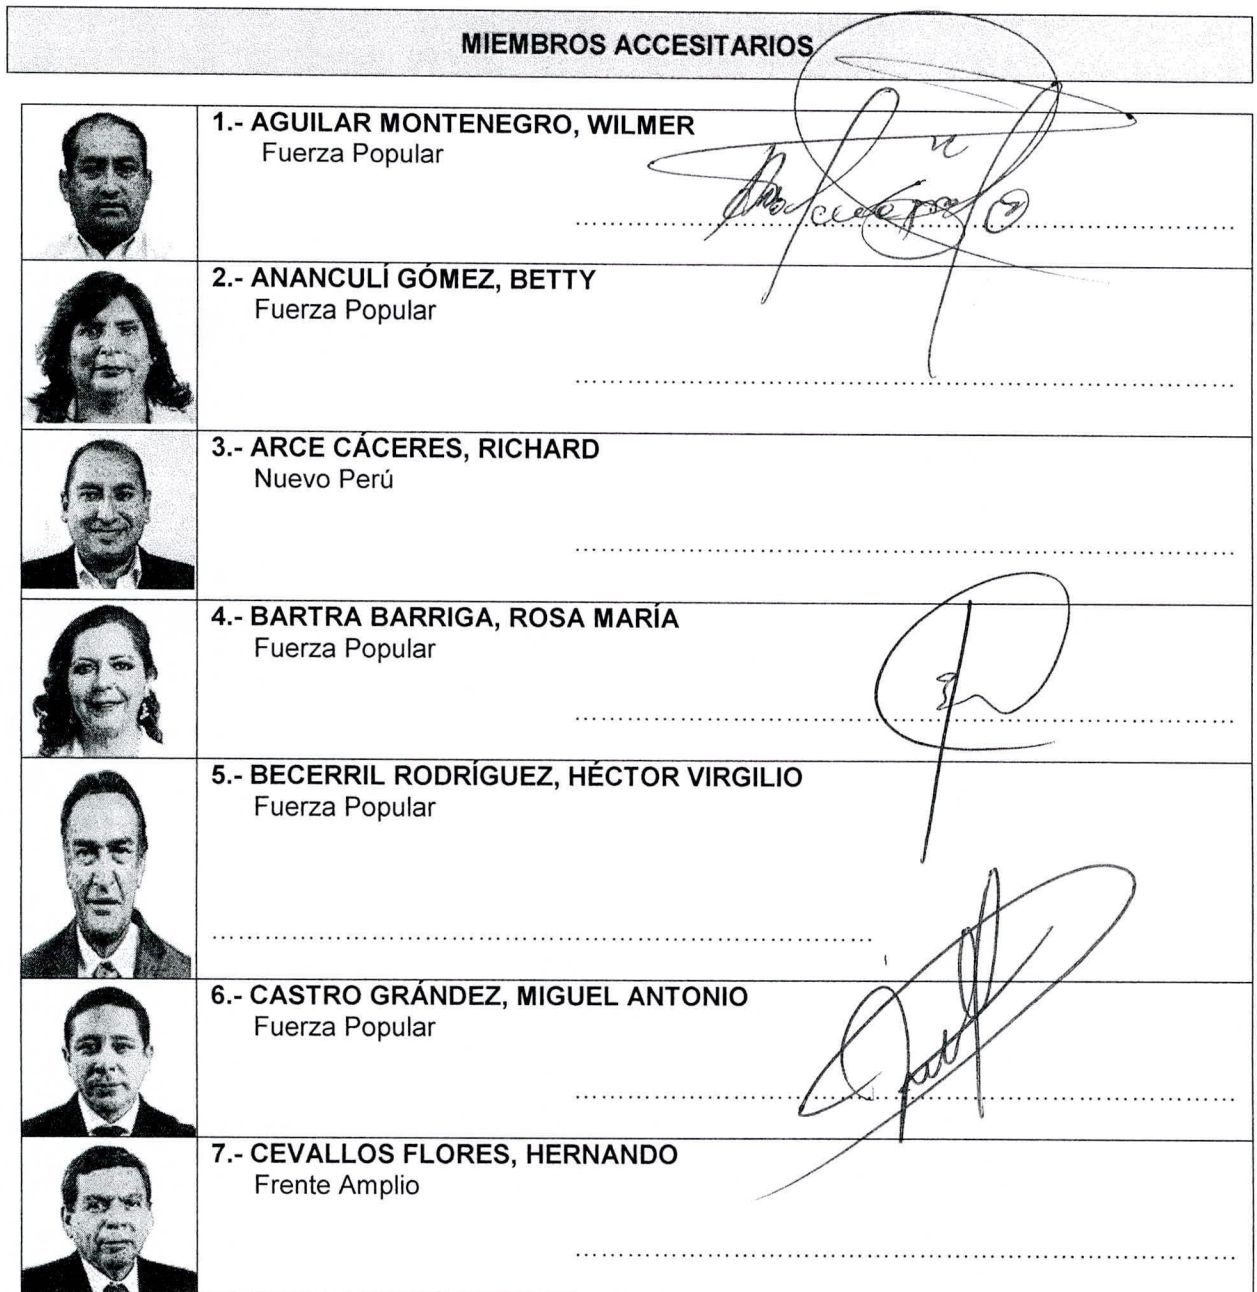 MIEMBROS ACCESITARIOS
1.- AGUILAR MONTENEGRO, WILMER
Fuerza Popular
2.- ANANCULÍ GÓMEZ, BETTY
Fuerza Popular
3.- ARCE CÁCERES, RICHARD
Nuevo Perú
4.- BARTRA BARRIGA, ROSA MARÍA
Fuerza Popular
5.- BECERRIL RODRÍGUEZ, HÉCTOR VIRGILIO
Fuerza Popular
6.- CASTRO GRÁNDEZ, MIGUEL ANTONIO
Fuerza Popular
7.- CEVALLOS FLORES, HERNANDO
Frente Amplio